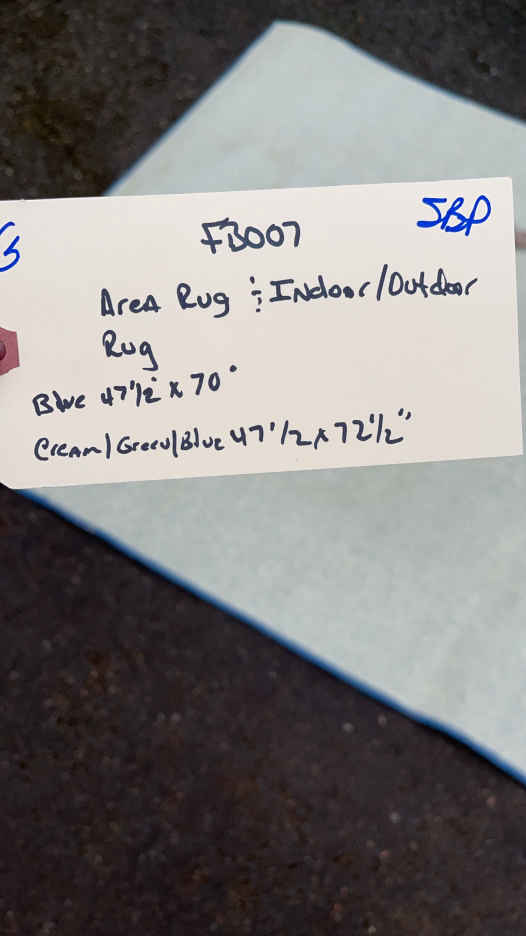 FB007
SBP
Area Rug & Indoor/Outdoor
Rug
Blue 47 1/2" x 70"
Cream/Green/Blue 47 1/2 x 72 1/2"